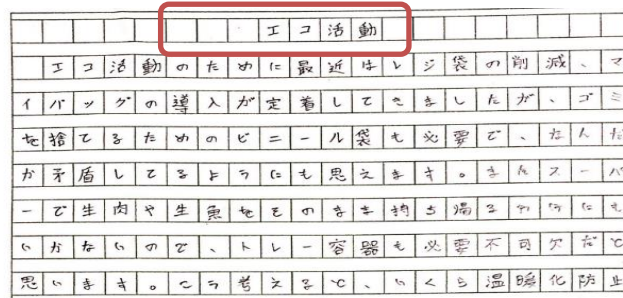 エコ活動
エコ活動のために最近はレジ袋の削減、マ
イバッグの導入が定着してきましたが、ゴミ
を捨てるためのビニール袋も必要で、なんだ
か矛盾してるようにも思えます。またスーパ
ーで生肉や生魚をそのまま持ち帰るわけにも
いかないので、トレー容器も必要不可欠だと
思います。こう考えると、いくら温暖化防止